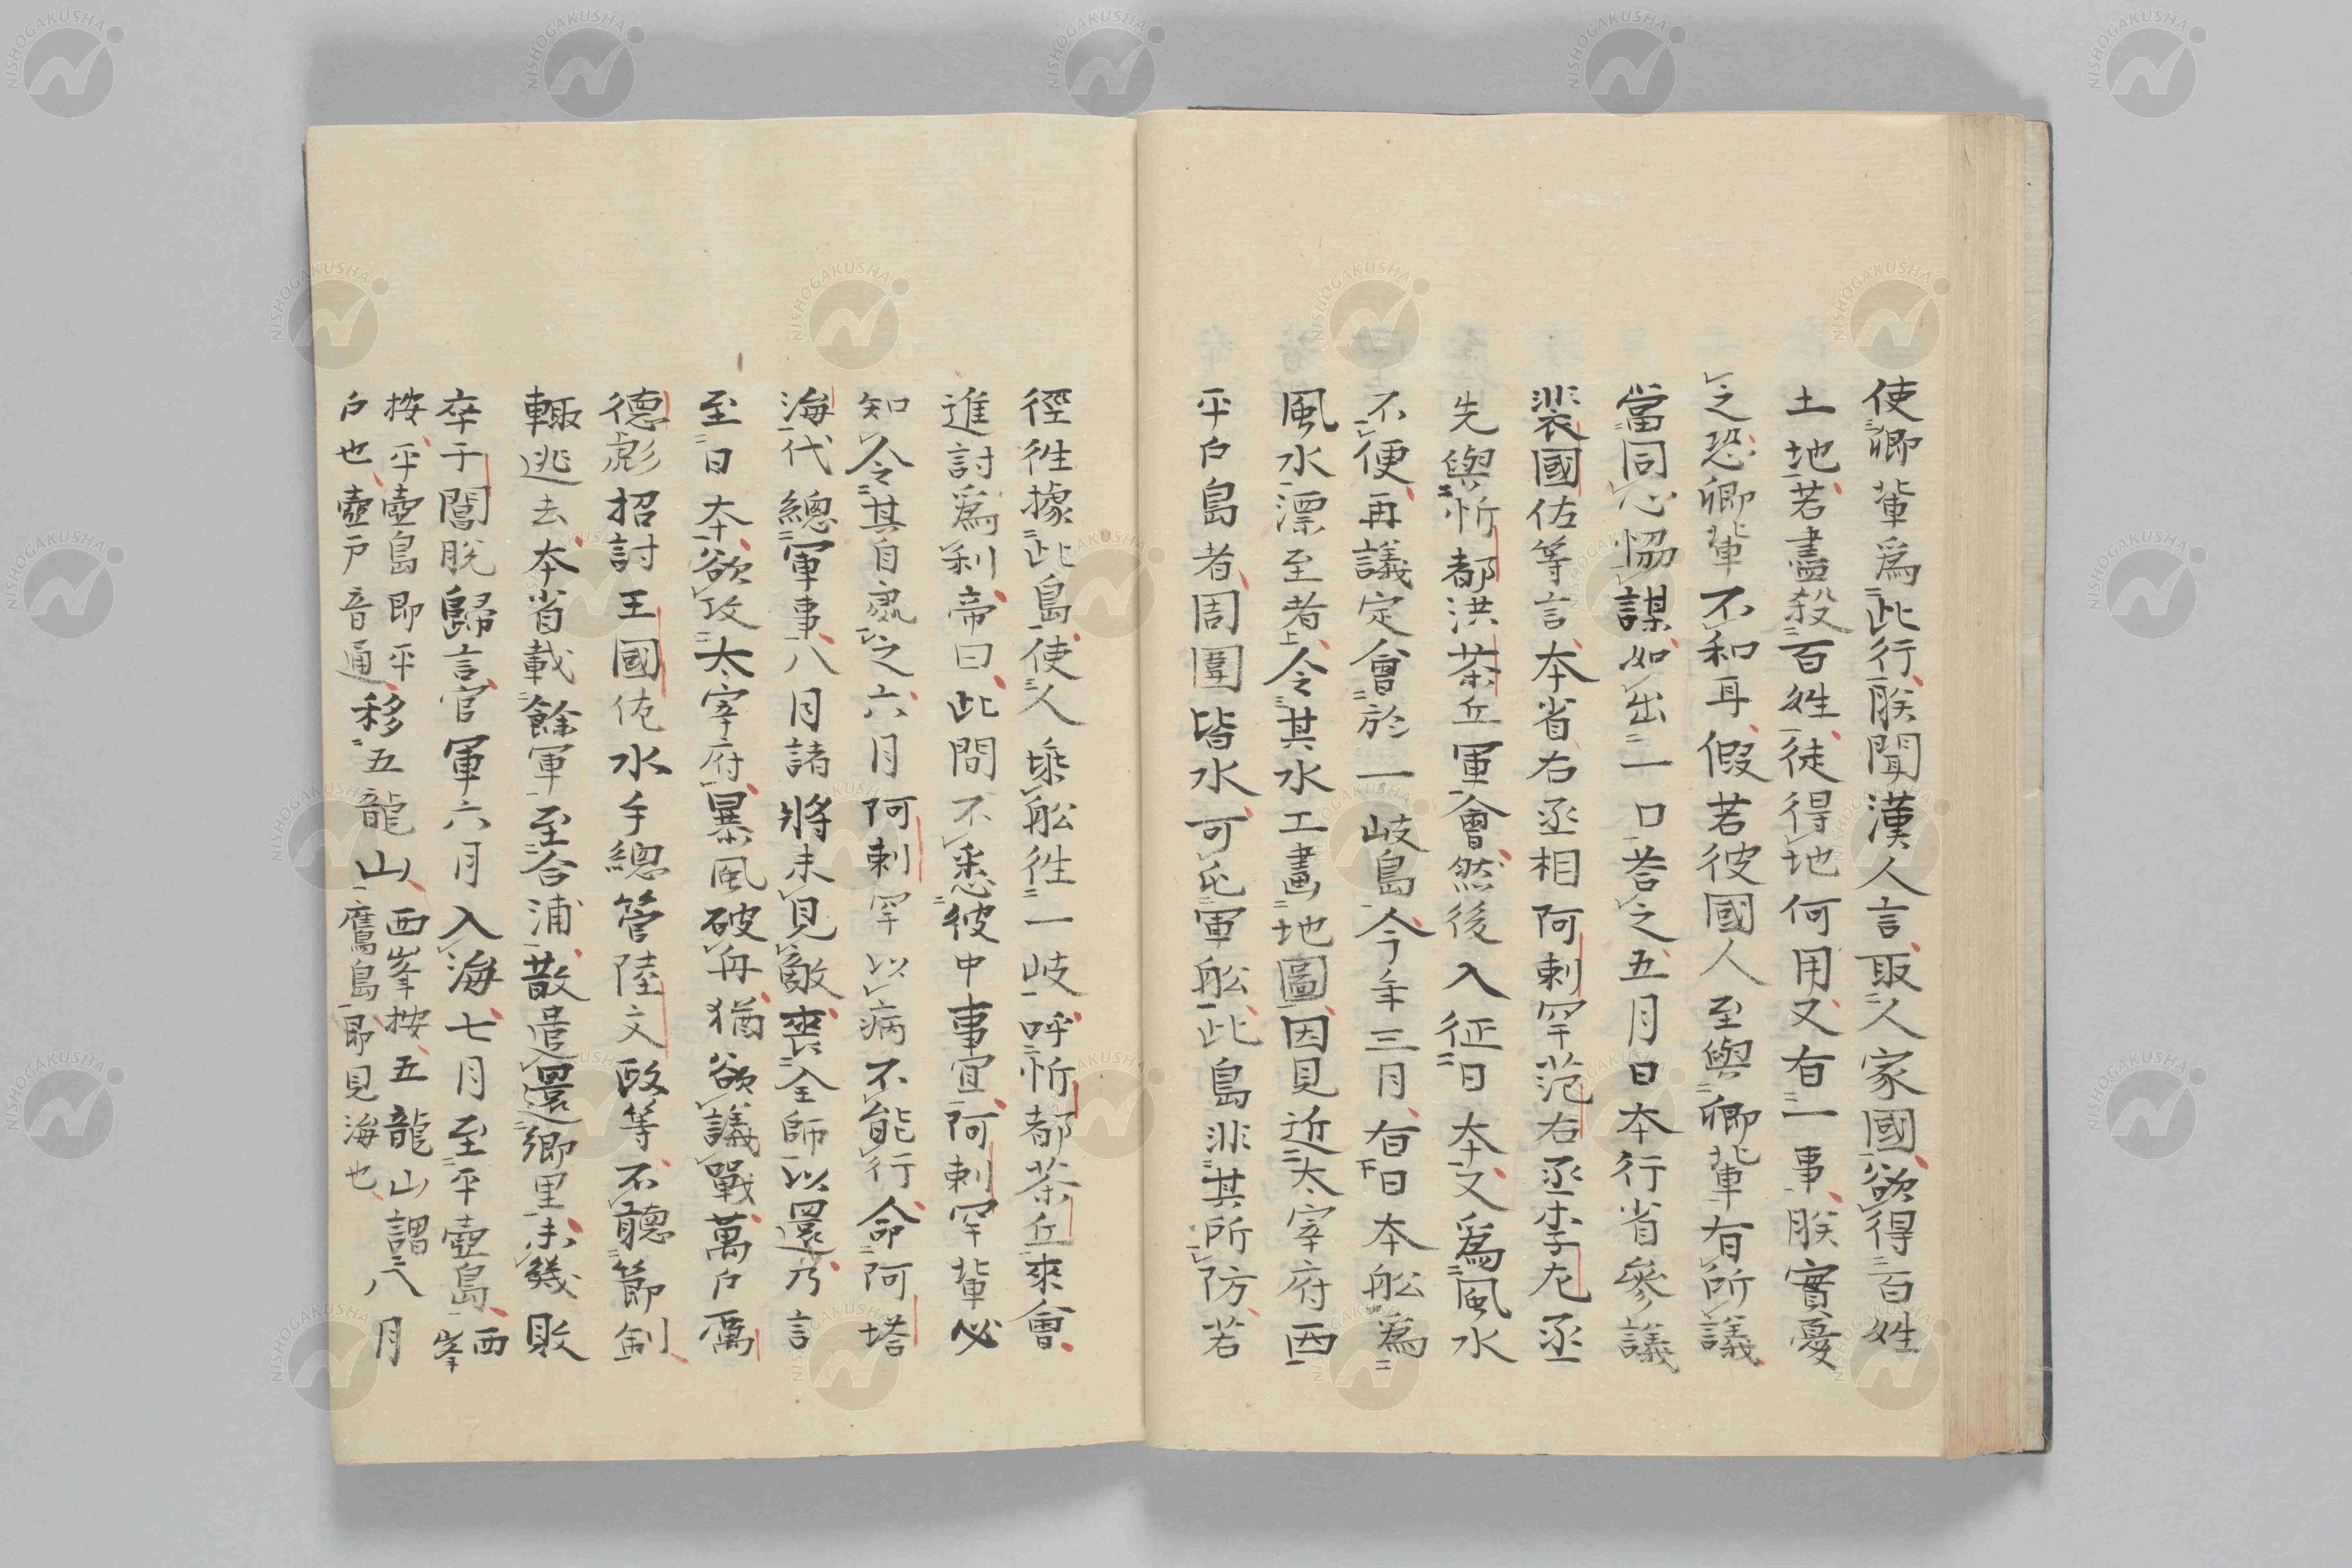 使卿輩爲此行朕聞漢人言取人家國欲得百姓
土地若盡殺百姓徒得地何用又有一事朕實憂
之恐卿輩不和耳假若彼國人至與卿輩有所議
當同心恊謀如出一口荅之五月日本行省參議
裴國佐等言本省右丞相阿剌罕范右丞李左丞
先與忻都洪茶丘軍會然後入征日本又爲風水
不便再議定會於一岐島今年三月有日本舩爲
風水漂至者令其水工畫地圖因見近太宰府西
平戸島者周圍皆水可屯軍舩此島非其所防若
徑徃據此島使人乗舩徃一岐呼忻都茶丘來會
進討爲利帝曰此間不悉彼中事宜阿剌罕輩必
知令其自處之六月阿剌罕以病不能行命阿塔
海代總軍事八月諸將未見敵喪全師以還乃言
至日本欲攻太宰府暴風破舟猶欲議戰萬戸厲
德彪招討王國佐水手總管陸文政等不聽節制
輙逃去本省載餘軍至合浦散遣還鄉里未幾敗
卒于閶脫歸言官軍六月入海七月至平壺島西峯
按平壺島即平
戸也壺戸音通
移五龍山
西峯按五龍山謂
鷹島即見海也
八月
NISHOGAKUSHA